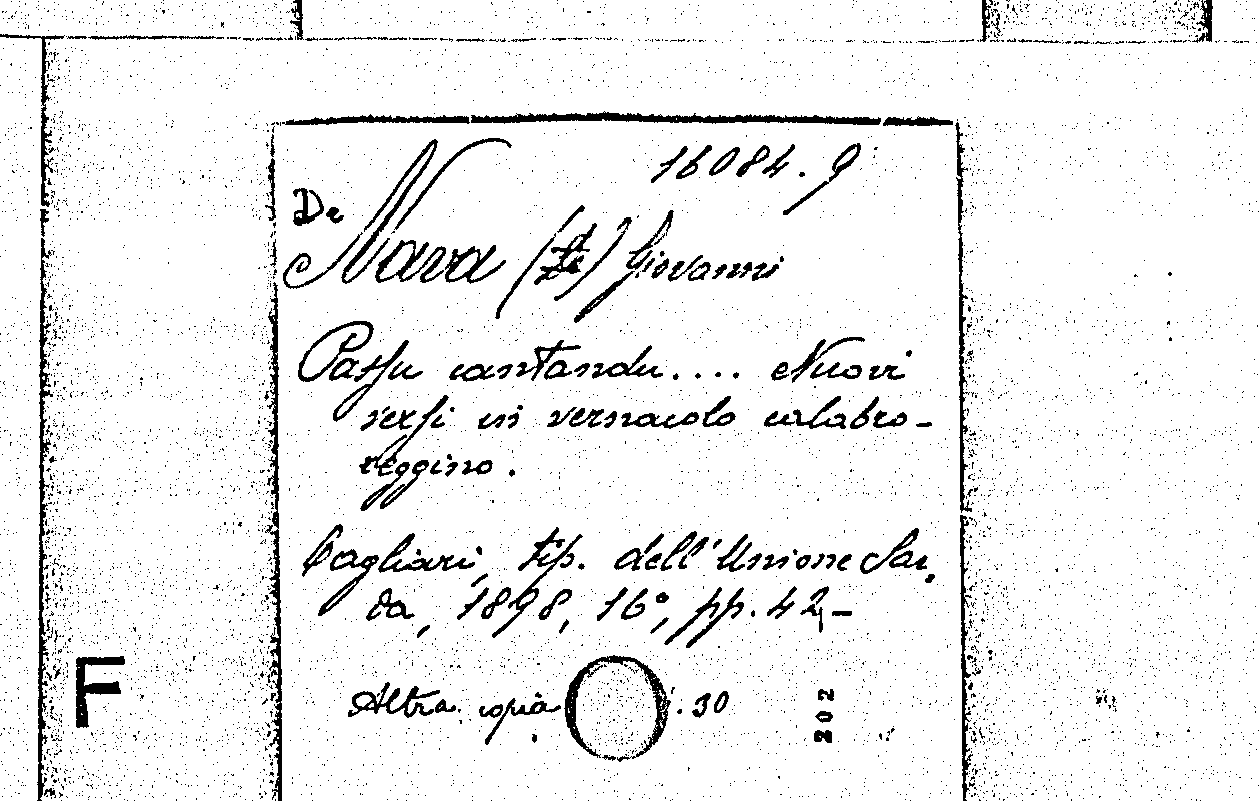 16084.9
De
Nava (de) Giovanni
Passu cantandu.... Nuovi
versi in vernacolo calabro-
reggino.
Cagliari, tip. dell'Unione Sar-
da, 1898, 16°, pp. 42,-
Altra copia .30
202
F